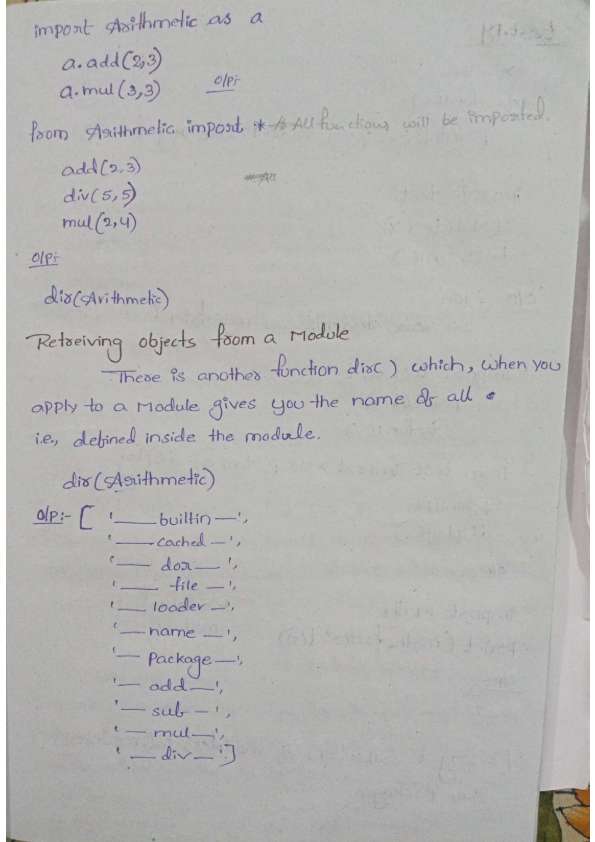 import Arithmetic as a
a.add(2,3)
a.mul(3,3) o/p:-
from Arithmetic import * All functions will be imported.
add(2,3)
div(5,5)
mul(2,4)
o/p:-
dir(Arithmetic)
Retreiving objects from a Module
There is another function dir( ) which, when you
apply to a Module gives you the name of all
i.e, defined inside the module.
dir(Arithmetic)
o/p:- [ '__builtin__',
'__cached__',
'__dox__',
'__file__',
'__loader__',
'__name__',
'__package__',
'__add__',
'__sub__',
'__mul__',
'__div__']